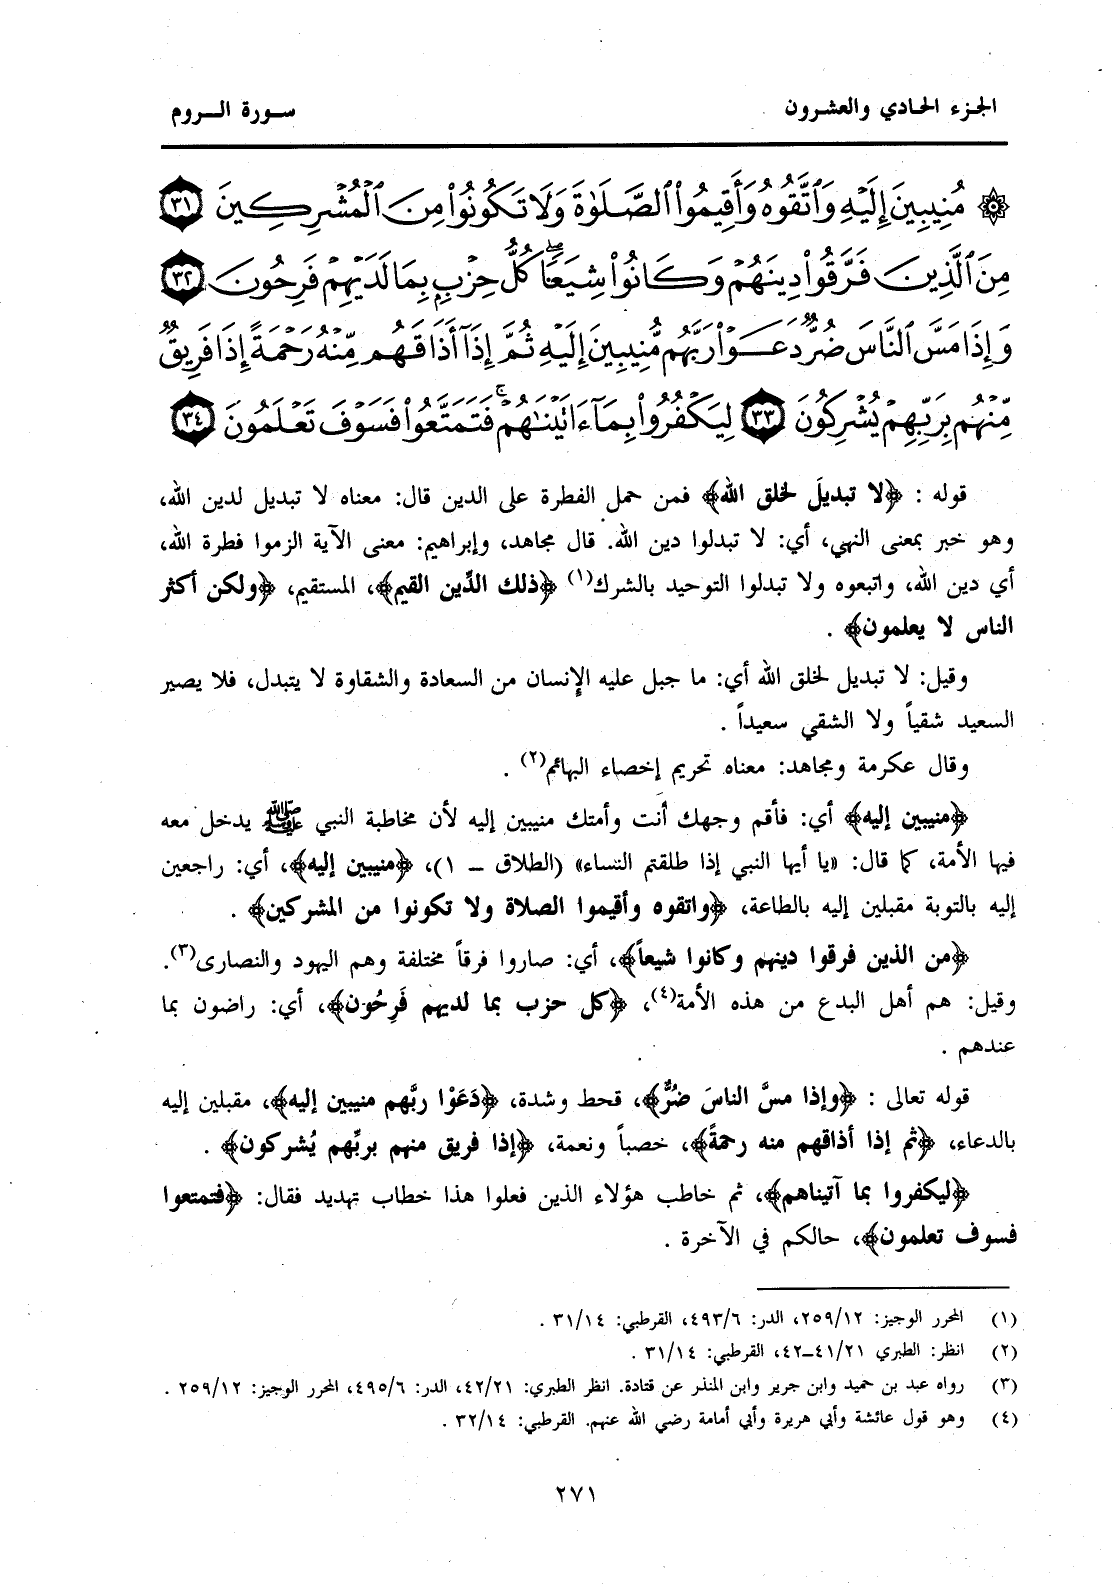 الجزء الحادي والعشرون
سورة الروم
۞ مُنِيبِينَ إِلَيْهِ وَٱتَّقُوهُ وَأَقِيمُوا۟ ٱلصَّلَوٰةَ وَلَا تَكُونُوا۟ مِنَ ٱلْمُشْرِكِينَ ٣١
مِنَ ٱلَّذِينَ فَرَّقُوا۟ دِينَهُمْ وَكَانُوا۟ شِيَعًا ۖ كُلُّ حِزْبٍۭ بِمَا لَدَيْهِمْ فَرِحُونَ ٣٢
وَإِذَا مَسَّ ٱلنَّاسَ ضُرٌّ دَعَوْا۟ رَبَّهُم مُّنِيبِينَ إِلَيْهِ ثُمَّ إِذَآ أَذَاقَهُم مِّنْهُ رَحْمَةً إِذَا فَرِيقٌ
مِّنْهُم بِرَبِّهِمْ يُشْرِكُونَ ٣٣ لِيَكْفُرُوا۟ بِمَآ ءَاتَيْنَٰهُمْ ۚ فَتَمَتَّعُوا۟ فَسَوْفَ تَعْلَمُونَ ٣٤
قوله : ﴿لا تبديلَ لخلق الله﴾ فمن حمل الفطرة على الدين قال: معناه لا تبديل لدين الله،
وهو خبر بمعنى النهي، أي: لا تبدلوا دين الله. قال مجاهد، وإبراهيم: معنى الآية الزموا فطرة الله،
أي دين الله، واتبعوه ولا تبدلوا التوحيد بالشرك(١) ﴿ذلك الدِّين القيم﴾، المستقيم، ﴿ولكن أكثر
الناس لا يعلمون﴾ .
وقيل: لا تبديل لخلق الله أي: ما جبل عليه الإنسان من السعادة والشقاوة لا يتبدل، فلا يصير
السعيد شقياً ولا الشقي سعيداً .
وقال عكرمة ومجاهد: معناه تحريم إخصاء البهائم(٢) .
﴿منيبين إليه﴾ أي: فأقم وجهك أنت وأمتك منيبين إليه لأن مخاطبة النبي ﷺ يدخل معه
فيها الأمة، كما قال: «يا أيها النبي إذا طلقتم النساء» (الطلاق – ١)، ﴿منيبين إليه﴾، أي: راجعين
إليه بالتوبة مقبلين إليه بالطاعة، ﴿واتقوه وأقيموا الصلاة ولا تكونوا من المشركين﴾ .
﴿من الذين فرقوا دينهم وكانوا شيعاً﴾، أي: صاروا فرقاً مختلفة وهم اليهود والنصارى(٣).
وقيل: هم أهل البدع من هذه الأمة(٤)، ﴿كل حزب بما لديهم فَرِحُون﴾، أي: راضون بما
عندهم .
قوله تعالى : ﴿وإذا مسَّ الناسَ ضُرٌّ﴾، قحط وشدة، ﴿دَعَوْا ربَّهم منيبين إليه﴾، مقبلين إليه
بالدعاء، ﴿ثم إذا أذاقهم منه رحمةً﴾، خصباً ونعمة، ﴿إذا فريق منهم بربِّهم يُشركون﴾ .
﴿ليكفروا بما آتيناهم﴾، ثم خاطب هؤلاء الذين فعلوا هذا خطاب تهديد فقال: ﴿فتمتعوا
فسوف تعلمون﴾، حالكم في الآخرة .
(١) المحرر الوجيز: ٢٥٩/١٢، الدر: ٤٩٣/٦، القرطبي: ٣١/١٤ .
(٢) انظر: الطبري ٤١/٢١–٤٢، القرطبي: ٣١/١٤ .
(٣) رواه عبد بن حميد وابن جرير وابن المنذر عن قتادة. انظر الطبري: ٤٢/٢١، الدر: ٤٩٥/٦، المحرر الوجيز: ٢٥٩/١٢ .
(٤) وهو قول عائشة وأبي هريرة وأبي أمامة رضي الله عنهم. القرطبي: ٣٢/١٤ .
٢٧١